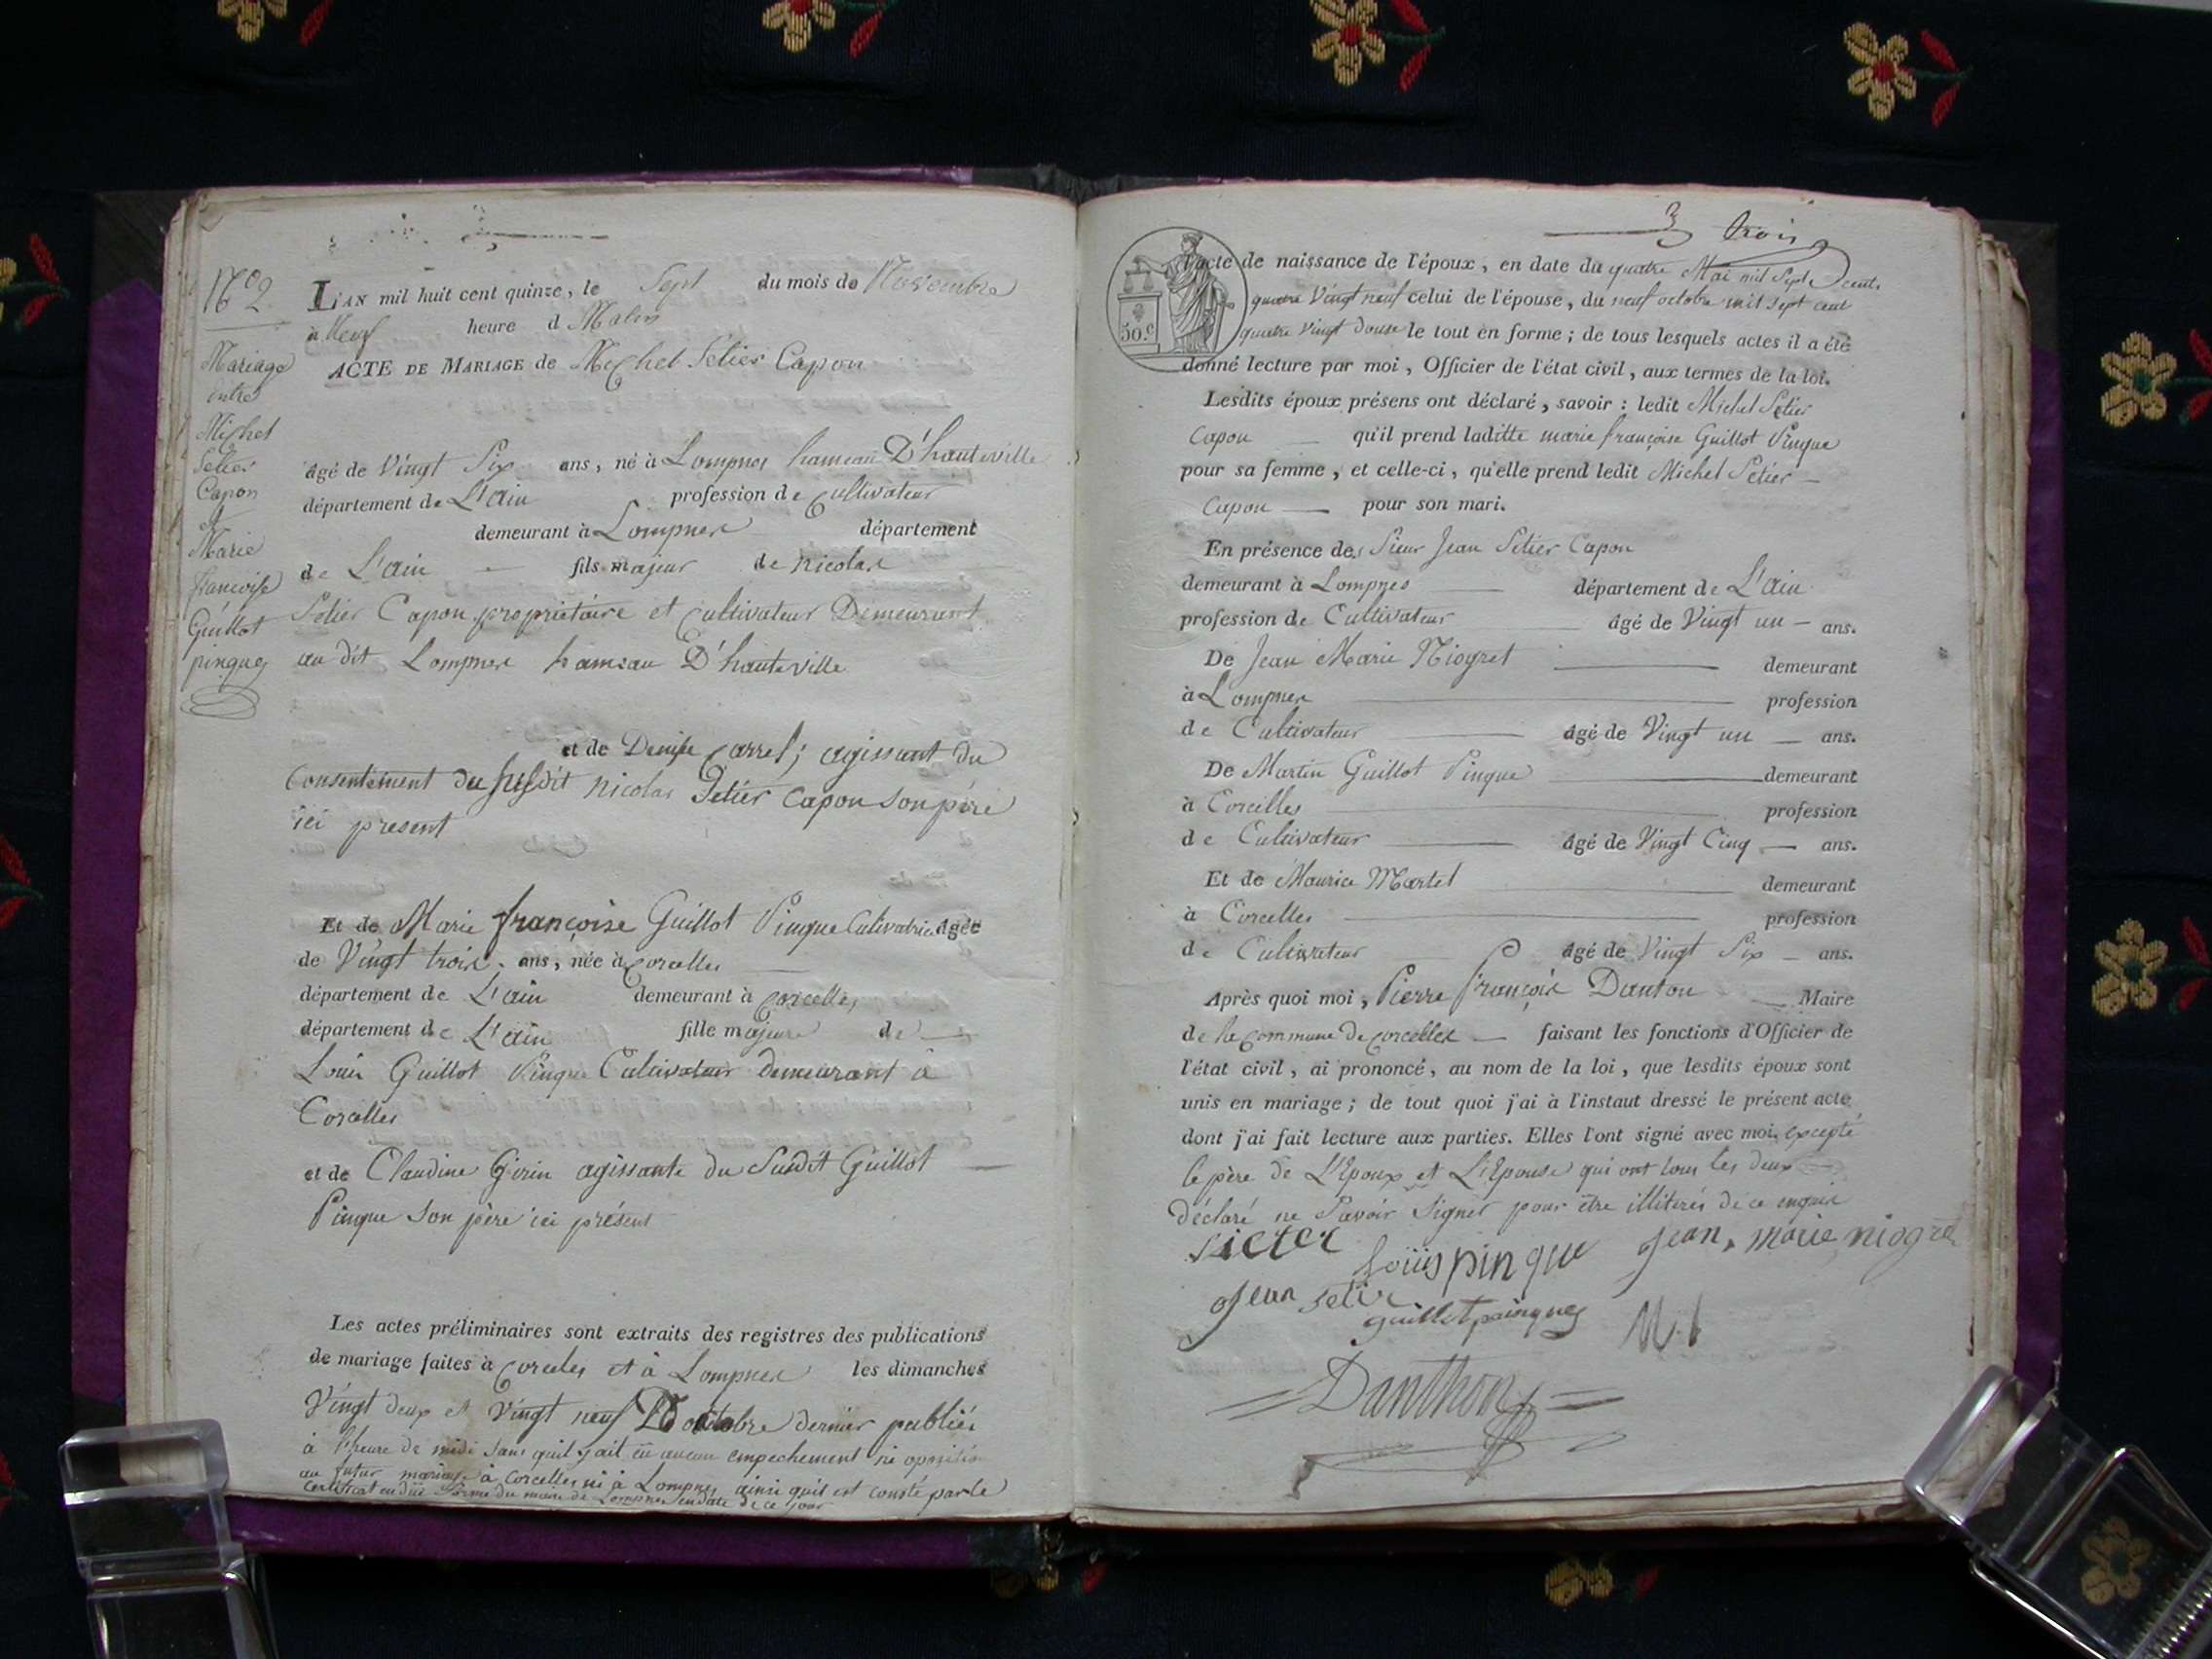 N.o 2.
Mariage
entre
Michel
Setier
Capon
et
Marie
françoise
Guillot
pinque
L'AN mil huit cent quinze, le Sept du mois de Novembre
à Neuf heure d Matin
ACTE DE MARIAGE de Michel Setier Capon
âgé de Vingt Six ans, né à Lompnes hameau D'hauteville
département de L'ain profession de Cultivateur
demeurant à Lompnes département
de L'ain fils majeur de Nicolas
Setier Capon propriétaire et Cultivateur Demeurant
au dit Lompnes hameau D'hauteville
et de Denise Carrel; agissant du
Consentement du susdit Nicolas Setier Capon son père
ici present
Et de Marie françoise Guillot Pinque Cultivatrice âgée
de Vingt trois ans, née à Corcelles
département de L'ain demeurant à Corcelles
département de L'ain fille majeure de
Louis Guillot Pinque Cultivateur demeurant à
Corcelles
et de Claudine Girin agissante du Susdit Guillot
Pinque Son père ici présent
Les actes préliminaires sont extraits des registres des publications
de mariage faites à Corcelles et à Lompnes les dimanches
Vingt deux et Vingt neuf octobre dernier publiés
à l'heure de midi Sans quil y ait eu aucun empechement ni opposition
au futur mariage à Corcelles ni à Lompnes ainsi quil est consté par le
Certificat en due forme du maire de Lompnes en date de ce jour
3 trois
50 c
l'acte de naissance de l'époux, en date du quatre Mai mil Sept cent
quatre Vingt neuf celui de l'épouse, du neuf octobre mil Sept cent
quatre Vingt douse le tout en forme; de tous lesquels actes il a été
donné lecture par moi, Officier de l'état civil, aux termes de la loi.
Lesdits époux présens ont déclaré, savoir: ledit Michel Setier
Capon qu'il prend laditte marie françoise Guillot Pinque
pour sa femme, et celle-ci, qu'elle prend ledit Michel Setier
Capon pour son mari.
En présence des Sieur Jean Setier Capon
demeurant à Lompnes département de L'ain
profession de Cultivateur âgé de Vingt un ans.
De Jean Marie Niogret demeurant
à Lompnes profession
de Cultivateur âgé de Vingt un ans.
De Martin Guillot Pinque demeurant
à Corcelles profession
de Cultivateur âgé de Vingt Cinq ans.
Et de Maurice Martel demeurant
à Corcelles profession
de Cultivateur âgé de Vingt Six ans.
Après quoi moi, Pierre François Danton Maire
de la Commune de Corcelles faisant les fonctions d'Officier de
l'état civil, ai prononcé, au nom de la loi, que lesdits époux sont
unis en mariage; de tout quoi j'ai à l'instaut dressé le présent acte
dont j'ai fait lecture aux parties. Elles l'ont signé avec moi, excepté
le père de L'Epoux et L'Epouse qui ont tous les deux
déclaré ne Savoir Signer pour être illitérés de ce enquis
Sieter Louis pinque Jean, marie niogre
Jean Setier guillot painques M.
Danthon